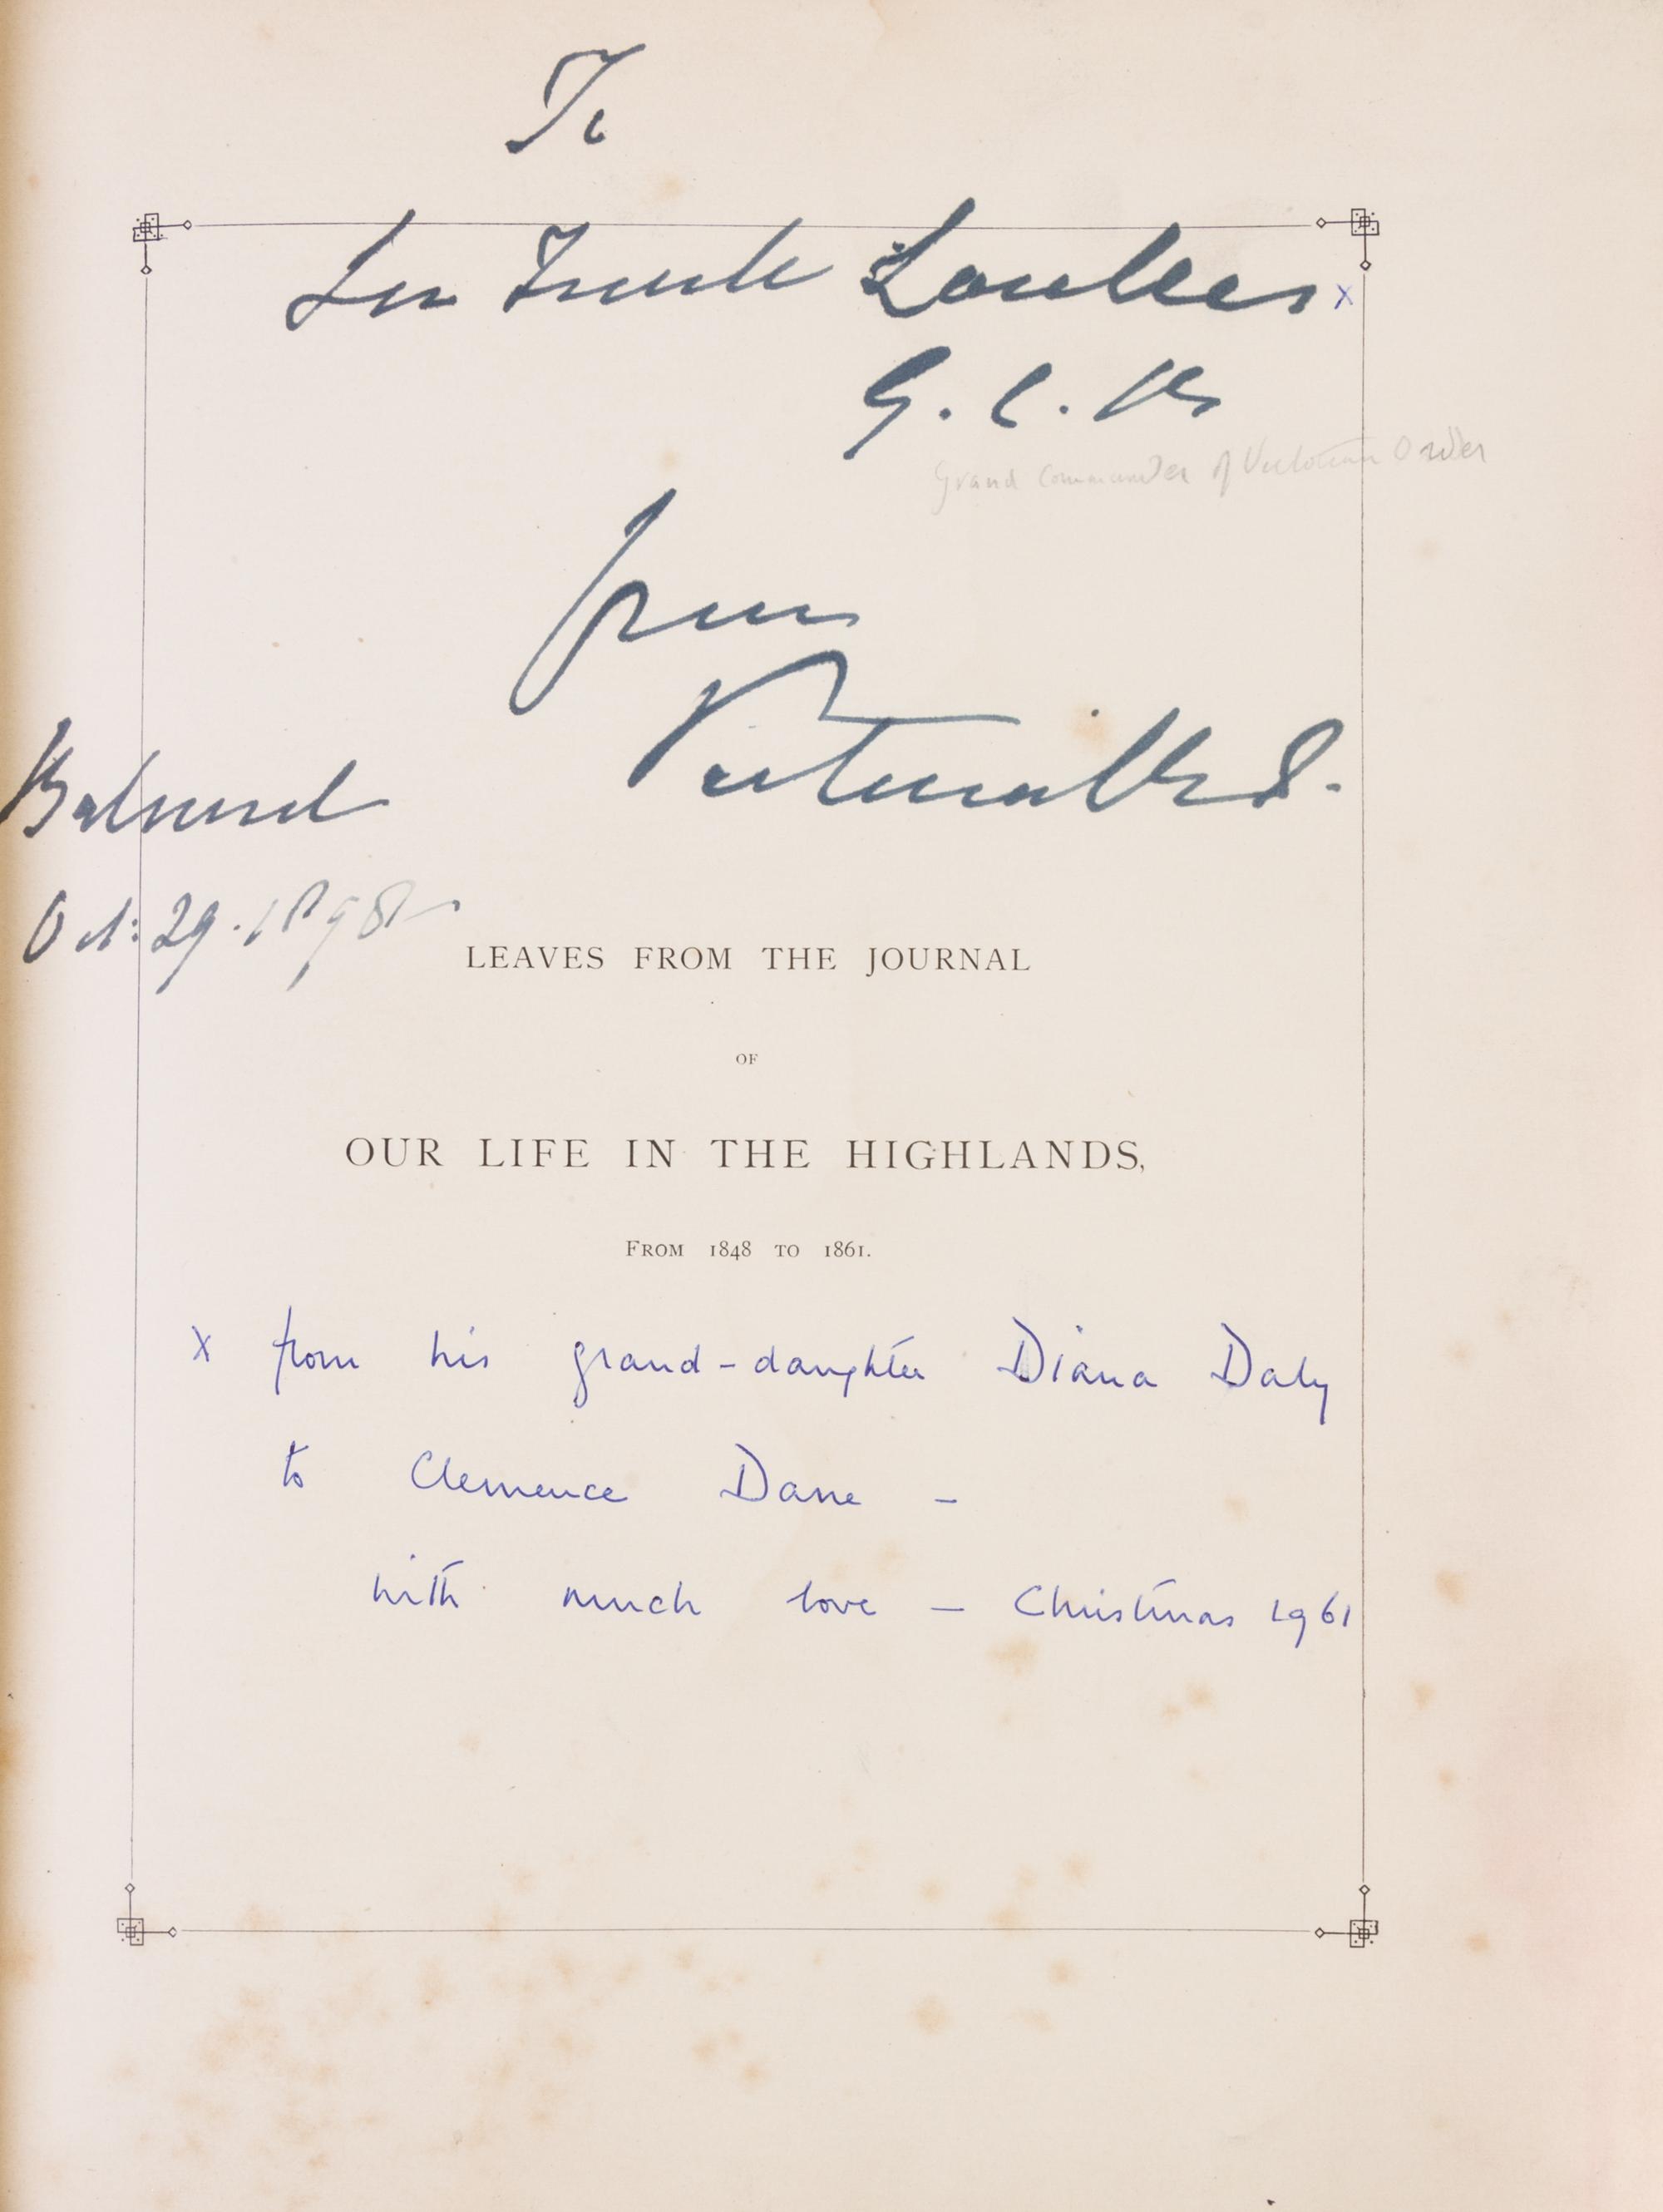 To
Sir Frank Lascelles x
G.C.V.O.
Grand Commander of Victorian Order
from
Victoria R I
Balmoral
Oct: 29. 1898
LEAVES FROM THE JOURNAL
OF
OUR LIFE IN THE HIGHLANDS,
FROM 1848 TO 1861.
x from his grand-daughter Diana Daly
to Clemence Dane -
with much love - Christmas 1961